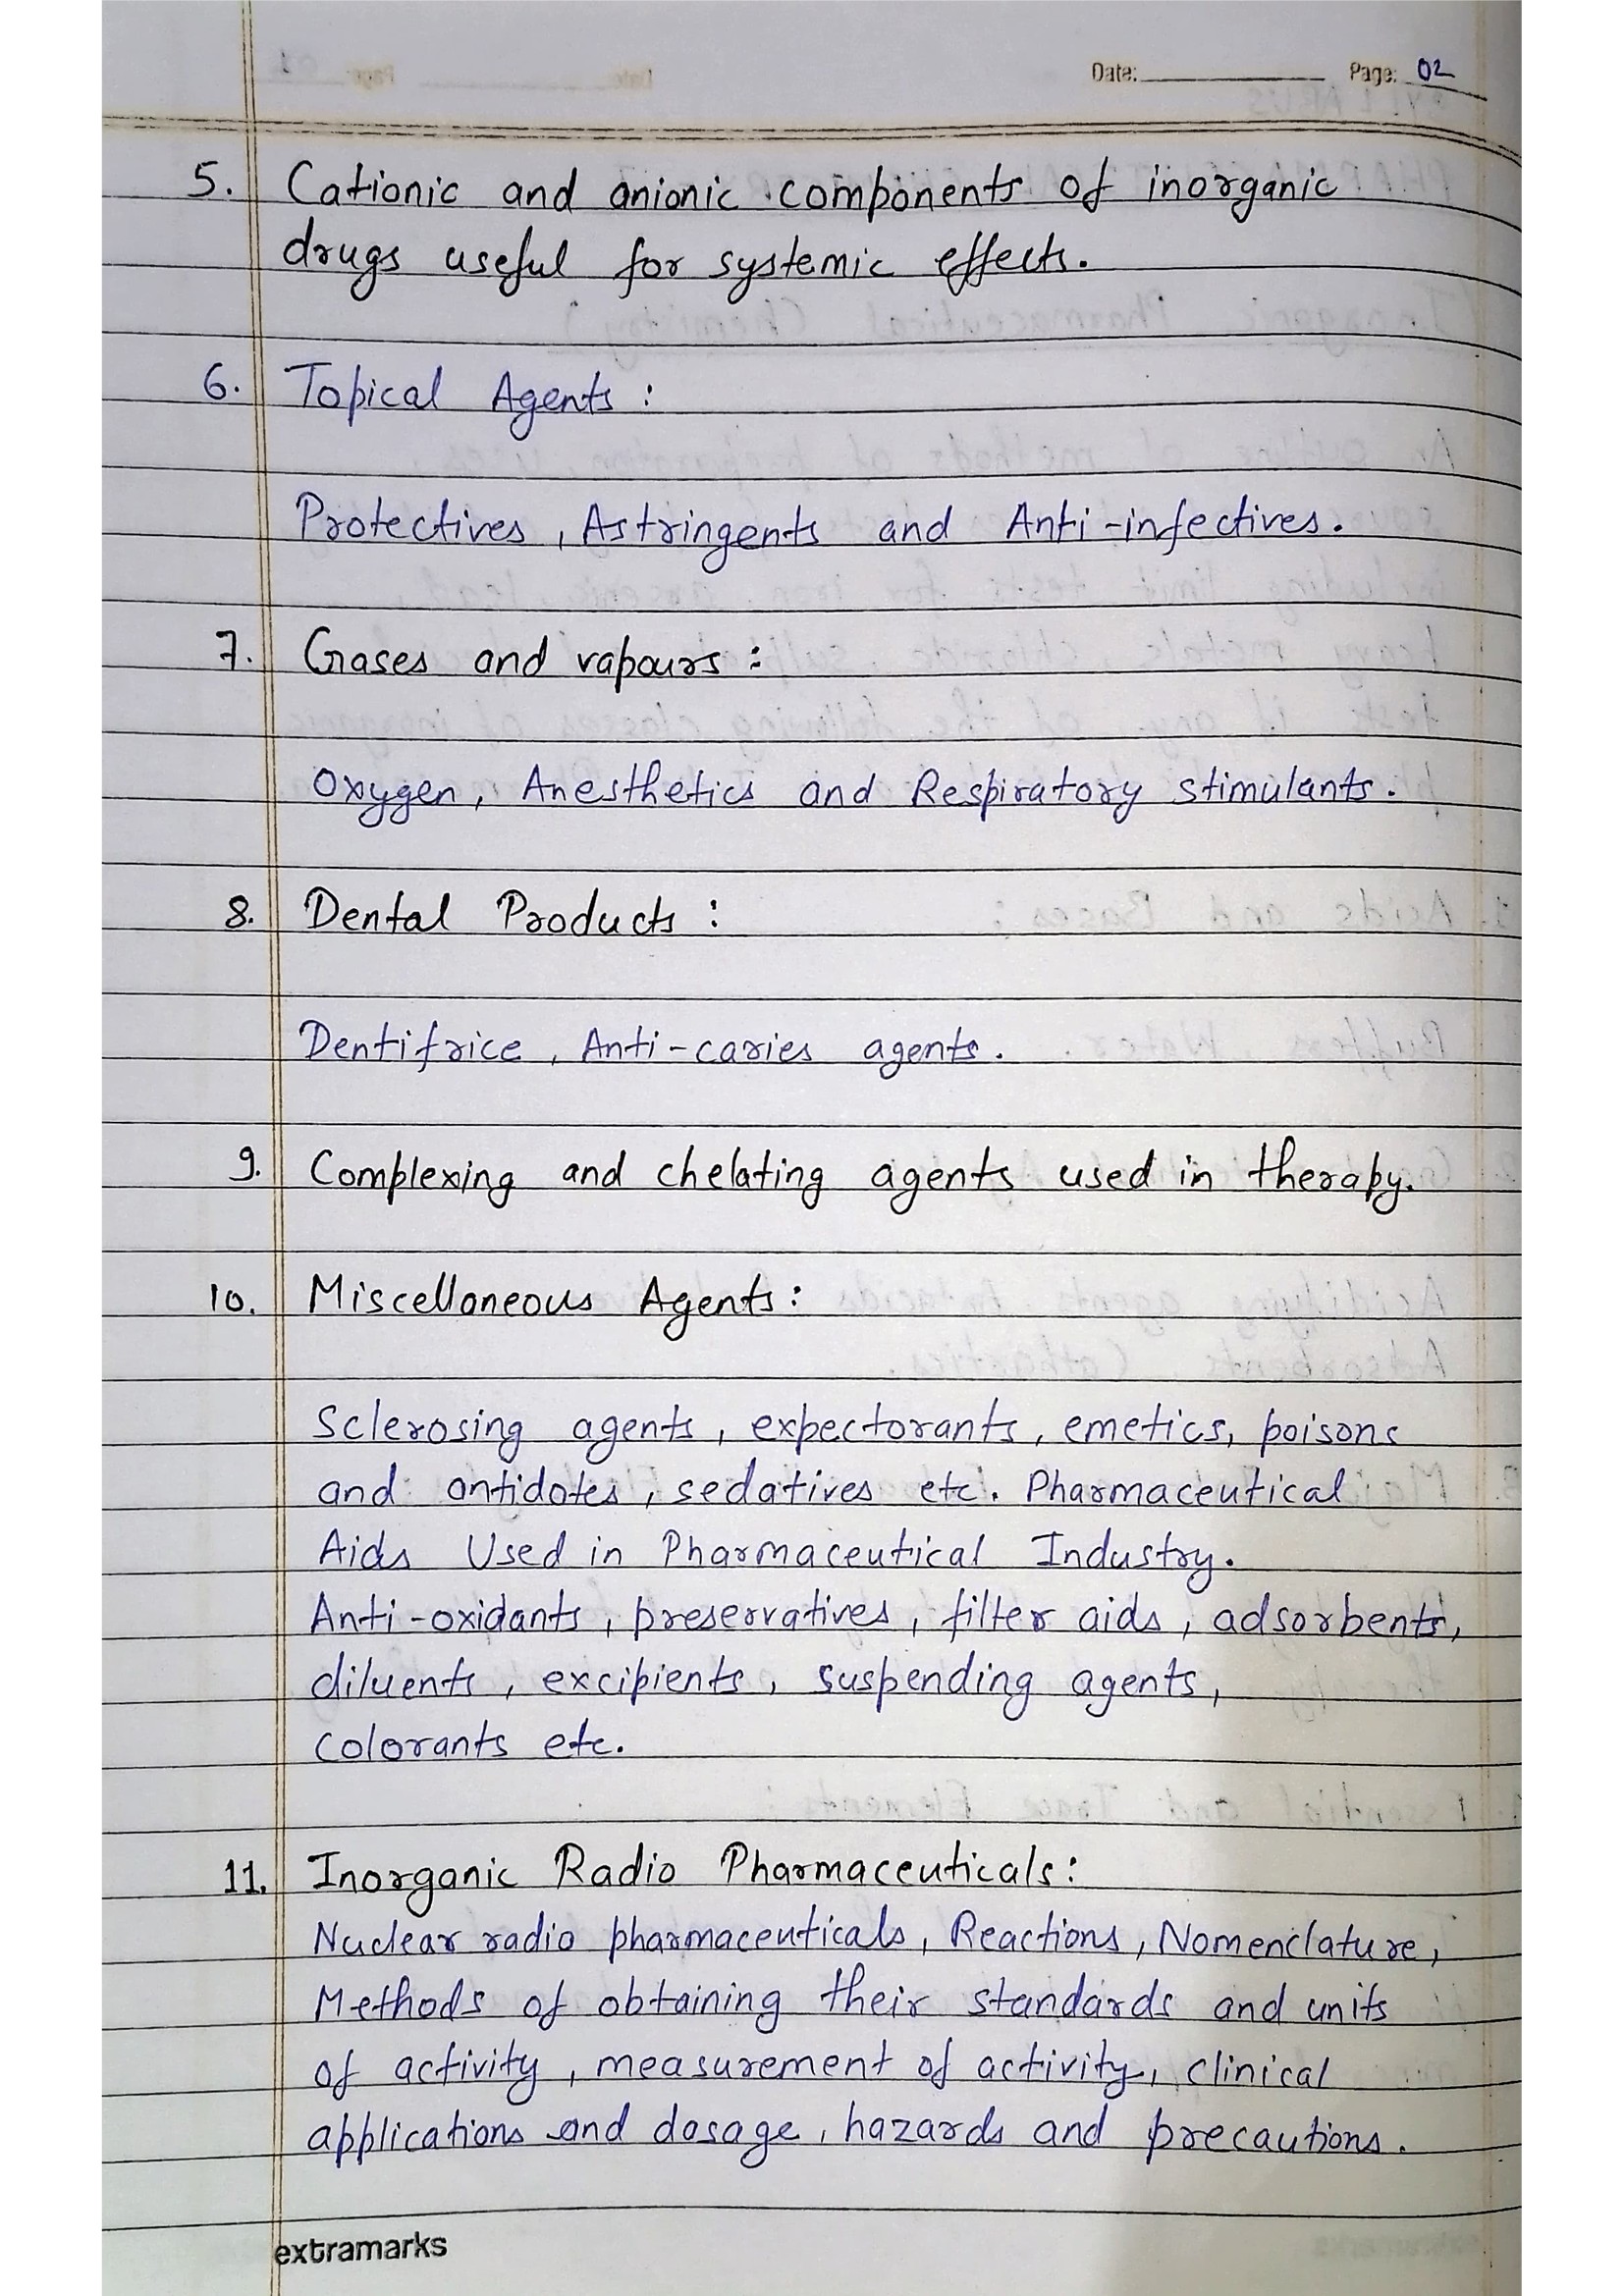 Date: Page: 02
5. Cationic and anionic components of inorganic
drugs useful for systemic effects.
6. Topical Agents :
Protectives, Astringents and Anti-infectives.
7. Gases and vapours :
Oxygen, Anesthetics and Respiratory stimulants.
8. Dental Products :
Dentifrice, Anti-caries agents.
9. Complexing and chelating agents used in therapy.
10. Miscellaneous Agents :
Sclerosing agents, expectorants, emetics, poisons
and antidotes, sedatives etc. Pharmaceutical
Aids Used in Pharmaceutical Industry.
Anti-oxidants, preservatives, filter aids, adsorbents,
diluents, excipients, suspending agents,
colorants etc.
11. Inorganic Radio Pharmaceuticals :
Nuclear radio pharmaceuticals, Reactions, Nomenclature,
Methods of obtaining their standards and units
of activity, measurement of activity, clinical
applications and dosage, hazards and precautions.
extramarks